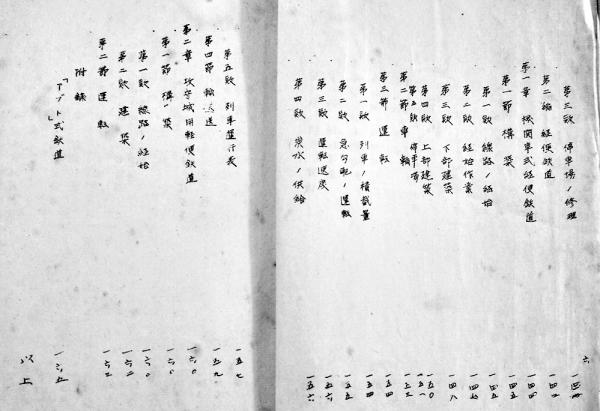 第三款 停車場ノ修理
第二編 軽便鉄道
第一章 機関車式軽便鉄道
第一節 構築
第一款 線路ノ経始
第二款 経始作業
第三款 下部建築
第四款 上部建築 一五〇
第五款 停車場 一五一
第二節 車輛 一五三
第三節 運転 一五四
第一款 列車ノ積載量 一五四
第二款 急勾配ノ運転 一五五
第三款 運転速度 一五六
第四款 炭水ノ供給 一五六
第五款 列車運行表 一五七
第四節 輸送 一五九
第二章 攻守城用軽便鉄道 一六〇
第一節 構築 一六〇
第一款 線路ノ経始 一六〇
第二款 建築 一六二
第二節 運転 一六三
附録
「アプト」式鉄道 一六五
以上